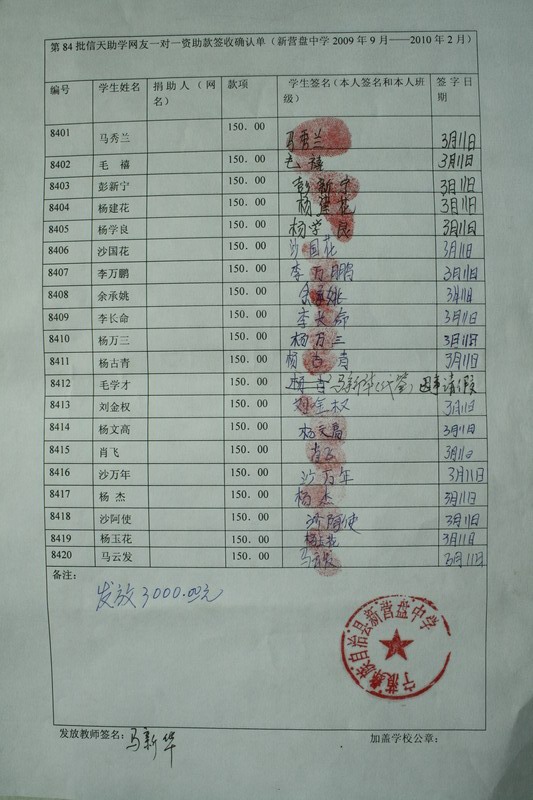 第 84 批信天助学网友一对一资助款签收确认单（新营盘中学 2009 年 9 月——2010 年 2 月）
编号 学生姓名 捐助人（网名） 款项 学生签名（本人签名和本人班级） 签字日期
8401 马秀兰 150.00 马秀兰 3月11日
8402 毛 禧 150.00 毛禧 3月11日
8403 彭新宁 150.00 彭新宁 3月11日
8404 杨建花 150.00 杨建花 3月11日
8405 杨学良 150.00 杨学良 3月11日
8406 沙国花 150.00 沙国花 3月11日
8407 李万鹏 150.00 李万鹏 3月11日
8408 余承姚 150.00 余承姚 3月11日
8409 李长命 150.00 李长命 3月11日
8410 杨万三 150.00 杨万三 3月11日
8411 杨古青 150.00 杨古青 3月11日
8412 毛学才 150.00 马新华(代签) 因事请假
8413 刘金权 150.00 刘金权 3月11日
8414 杨文高 150.00 杨文高 3月11日
8415 肖飞 150.00 肖飞 3月11日
8416 沙万年 150.00 沙万年 3月11日
8417 杨 杰 150.00 杨杰 3月11日
8418 沙阿使 150.00 沙阿使 3月11日
8419 杨玉花 150.00 杨玉花 3月11日
8420 马云发 150.00 马云发 3月11日
备注：
发放3000.00元
宁蒗彝族自治县新营盘中学
发放教师签名：马新华 加盖学校公章：